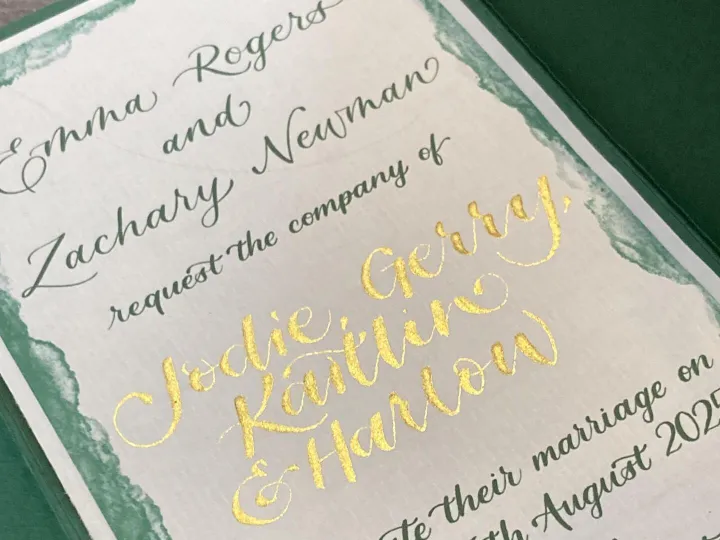 Emma Rogers
and
Zachary Newman
request the company of
Jodie, Gerry,
Kaitlin
& Harlow
their marriage on
August 2025